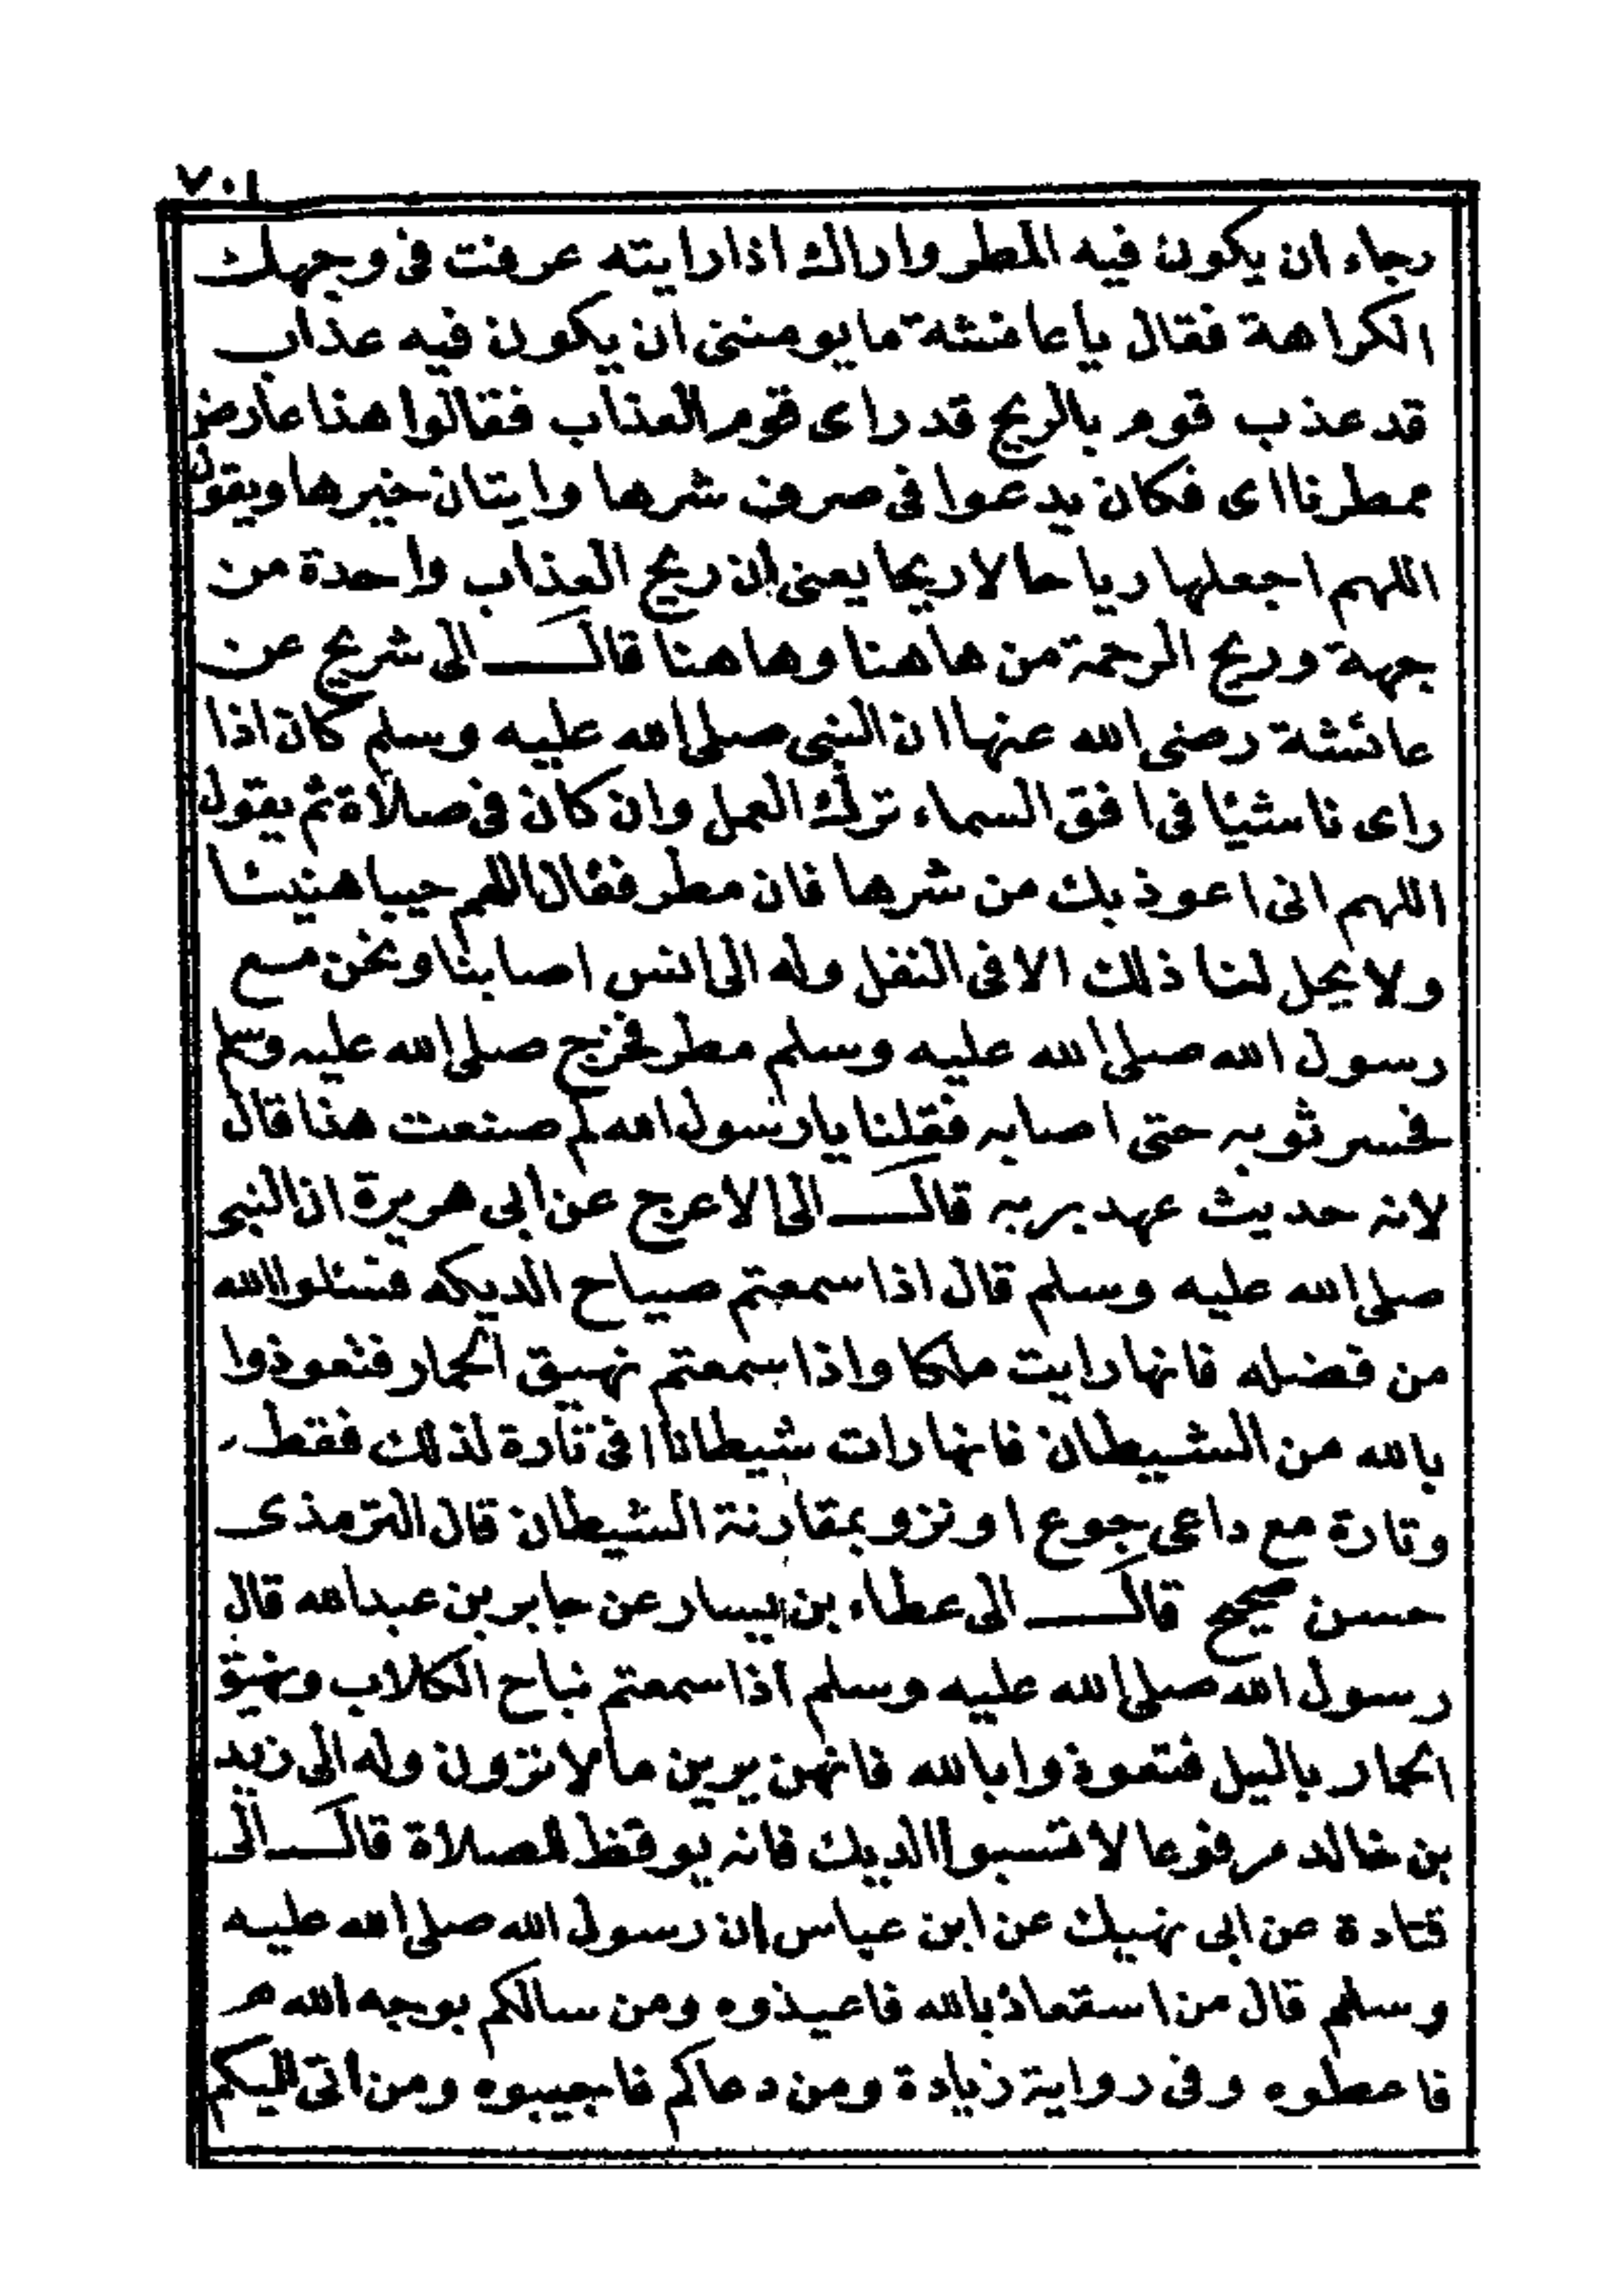 ٧٠١
رجاء ان يكون فيه المطر واراك اذا رايته عرفت فى وجهك
الكراهة فقال يا عائشة ما يومننى ان يكون فيه عذاب
قد عذب قوم بالريح قد راى قوم العذاب فقالوا هذا عارض
ممطرنا اى فكان يدعوا فى صرف شرها وايتان خيرها ويقول
اللهم اجعلها رياحا لا ريحا يعنى ان ريح العذاب واحدة من
جهة وريح الرحمة من هاهنا وهاهنا قال الى شريح عن
عائشة رضى الله عنها ان النبى صلى الله عليه وسلم كان اذا
راى ناشئا فى افق السماء ترك العمل وان كان فى صلاة ثم يقول
اللهم انى اعوذ بك من شرها فان مطر فقال اللهم حيبا هنيئا
ولا يحل لنا ذلك الا فى النفل وله الى انس اصابنا ونحن مع
رسول الله صلى الله عليه وسلم مطر فخرج صلى الله عليه وسلم
فحسر ثوبه حتى اصابه فقلنا يا رسول الله لم صنعت هذا قال
لانه حديث عهد بربه قال الى الاعرج عن ابى هريرة ان النبى
صلى الله عليه وسلم قال اذا سمعتم صياح الديكه فسئلوا الله
من فضله فانها رايت ملكا واذا سمعتم نهيق الحمار فتعوذوا
بالله من الشيطان فانها رات شيطانا اى فى تارة لذلك فقط
وتارة مع داعى جوع او نزو بمقارنة الشيطان قال الترمذى
حسن صحيح قال الى عطاء بن يسار عن جابر بن عبد الله قال
رسول الله صلى الله عليه وسلم اذا سمعتم نباح الكلاب ونهيق
الحمار بالليل فتعوذوا بالله فانهن يرين ما لا ترون وله الى زيد
بن خالد مرفوعا لا تسبوا الديك فانه يوقظ للصلاة قال الى
قتادة عن ابى نهيك عن ابن عباس ان رسول الله صلى الله عليه
وسلم قال من استعاذ بالله فاعيذوه ومن سالكم بوجه الله
فاعطوه وفى رواية زيادة ومن دعاكم فاجيبوه ومن اتى اليكم